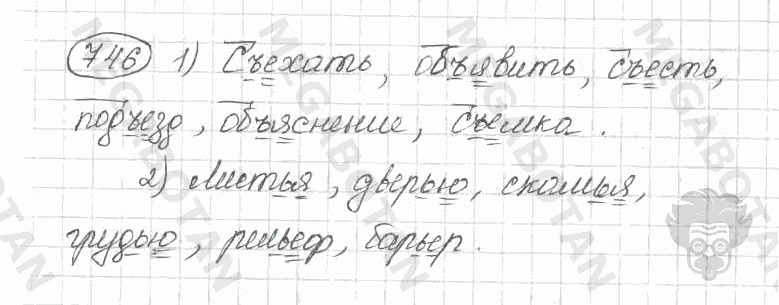 746 1) Съехать, объявить, съесть,
подъезд, объяснение, съёмка.
2) Листья, дверью, скамья,
грудью, рельеф, барьер.
MEGABOTAN